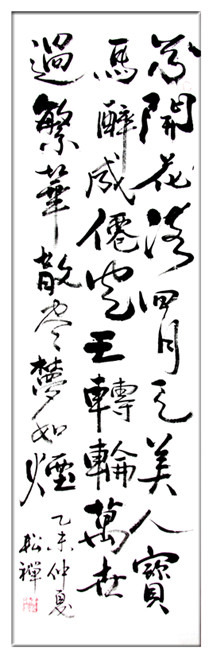 花開花落四月天美人寶
馬醉成僊空王轉輪萬世
過繁華散盡夢如煙
乙未仲夏
松禪